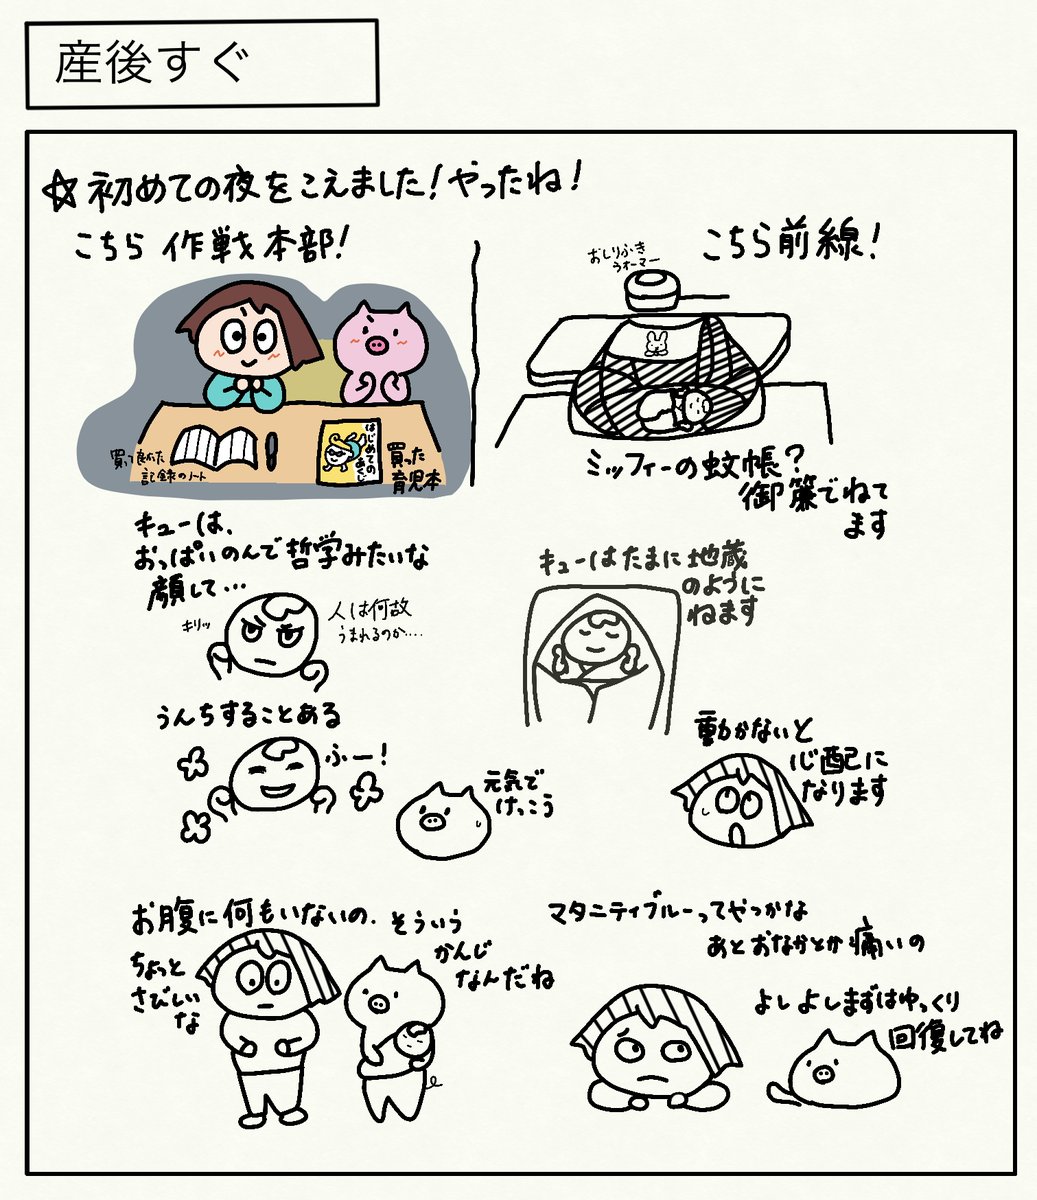 産後すぐ
☆初めての夜をこえました!やったね!
こちら作戦本部!
買って良かった
記録のノート
はじめての
いくじ
買った
育児本
こちら前線!
おしりふき
ウォーマー
ミッフィーの蚊帳?
御簾でねて
ます
キューは、
おっぱいのんで哲学みたいな
顔して…
キリッ
人は何故
うまれるのか….
うんちすることある
ふー!
元気で
けっこう
キューはたまに地蔵
のように
ねます
動かないと
心配に
なります
お腹に何もいないの、
ちょっと
さびしい
な
そういう
かんじ
なんだね
マタニティブルーってやつかな
あとおなかとか痛いの
よしよしまずはゆっくり
回復してね